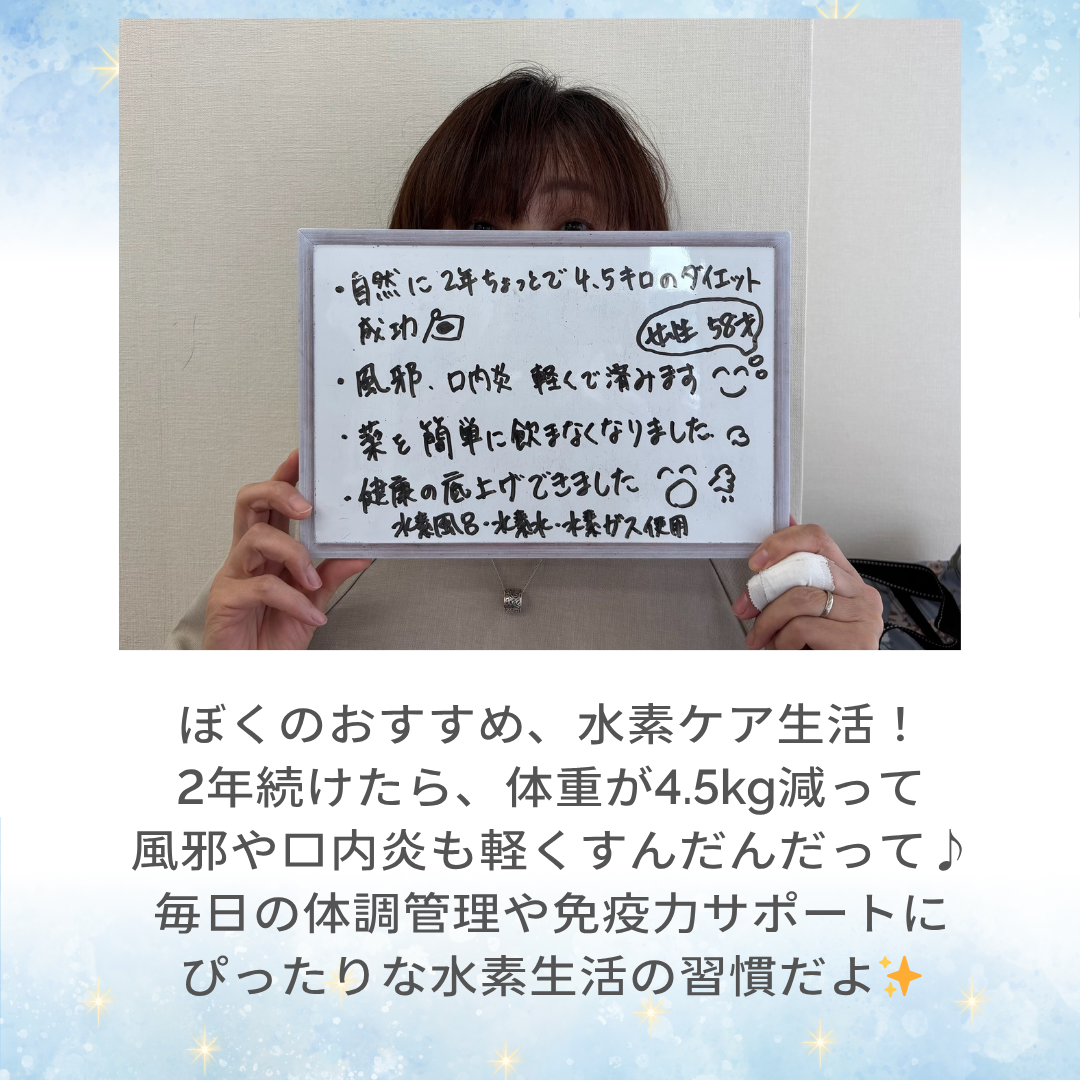 ・自然に2年ちょっとで4.5キロのダイエット
成功
女性 58才
・風邪、口内炎 軽くで済みます
・薬を簡単に飲まなくなりました
・健康の底上げできました
水素風呂・水素水・水素ガス使用
ぼくのおすすめ、水素ケア生活！
2年続けたら、体重が4.5kg減って
風邪や口内炎も軽くすんだんだって♪
毎日の体調管理や免疫力サポートに
ぴったりな水素生活の習慣だよ✨